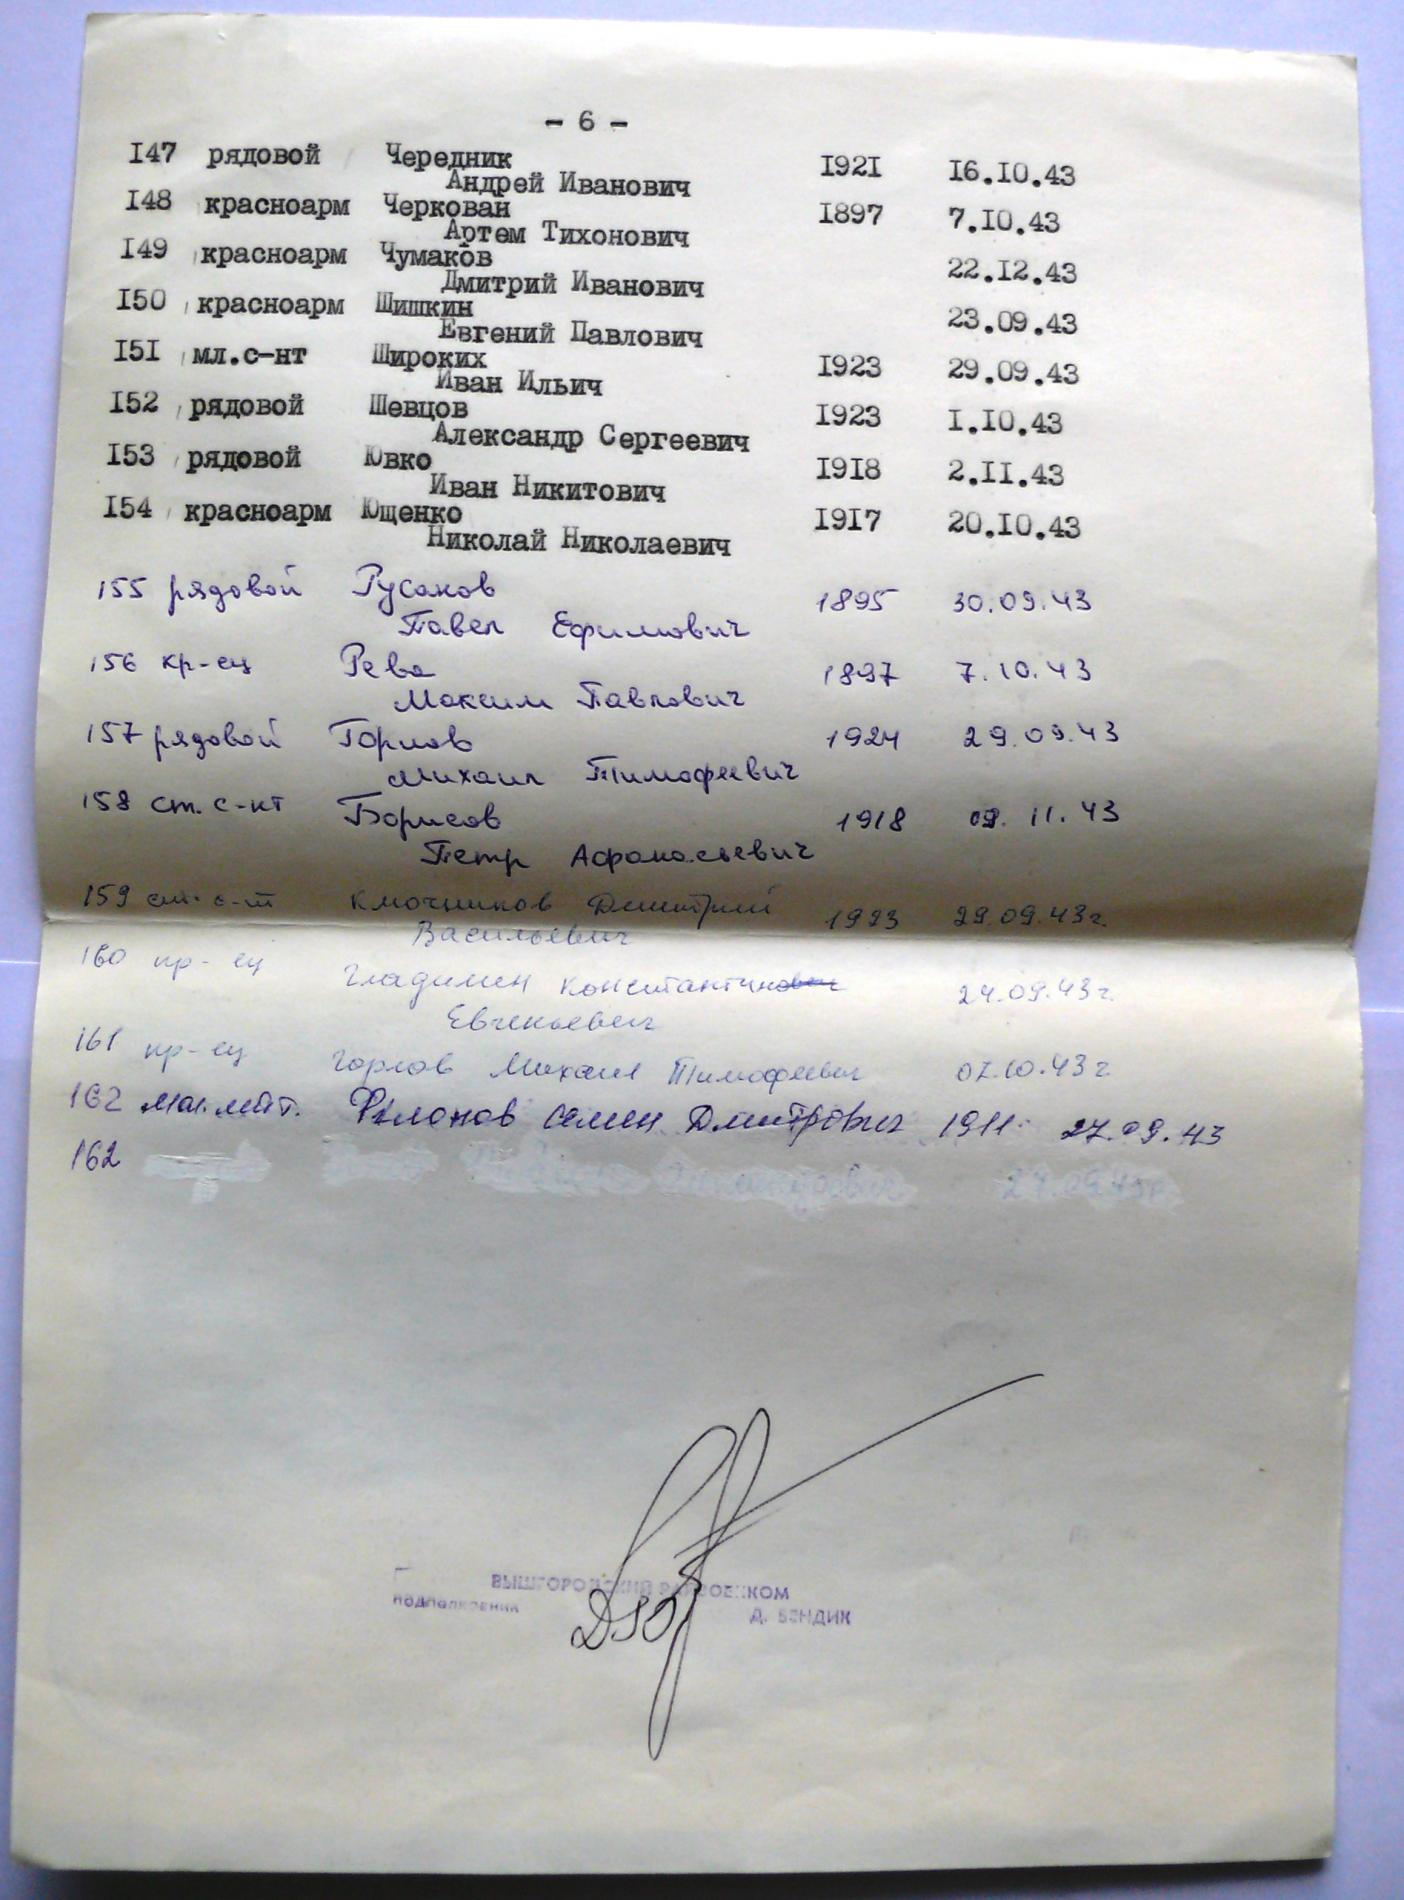 - 6 -
I47 рядовой Чередник I92I I6.I0.43
Андрей Иванович
I48 красноарм Черкован I897 7.I0.43
Артем Тихонович
I49 красноарм Чумаков 22.I2.43
Дмитрий Иванович
I50 красноарм Шишкин 23.09.43
Евгений Павлович
I5I мл.с-нт Широких I923 29.09.43
Иван Ильич
I52 рядовой Шевцов I923 I.I0.43
Александр Сергеевич
I53 рядовой Ювко I9I8 2.II.43
Иван Никитович
I54 красноарм Ющенко I9I7 20.I0.43
Николай Николаевич
155 рядовой Русаков 1895 30.09.43
Павел Ефимович
156 кр-ец Рева 1897 7.10.43
Максим Павлович
157 рядовой Горлов 1924 29.09.43
Михаил Тимофеевич
158 ст. с-нт Борисов 1918 09.11.43
Петр Афанасьевич
159 ст. с-т Ключников Дмитрий 1923 29.09.43г.
Васильевич
160 кр-ец Гладилин Константинович 24.09.43г.
Евгеньевич
161 кр-ец Горлов Михаил Тимофеевич 07.10.43г
162 мл.лейт. Филонов Семен Дмитрович 1911 27.09.43
162
ВЫШГОРОДСКИЙ РАЙВОЕНКОМ
ПОДПОЛКОВНИК Д. БЕНДИК